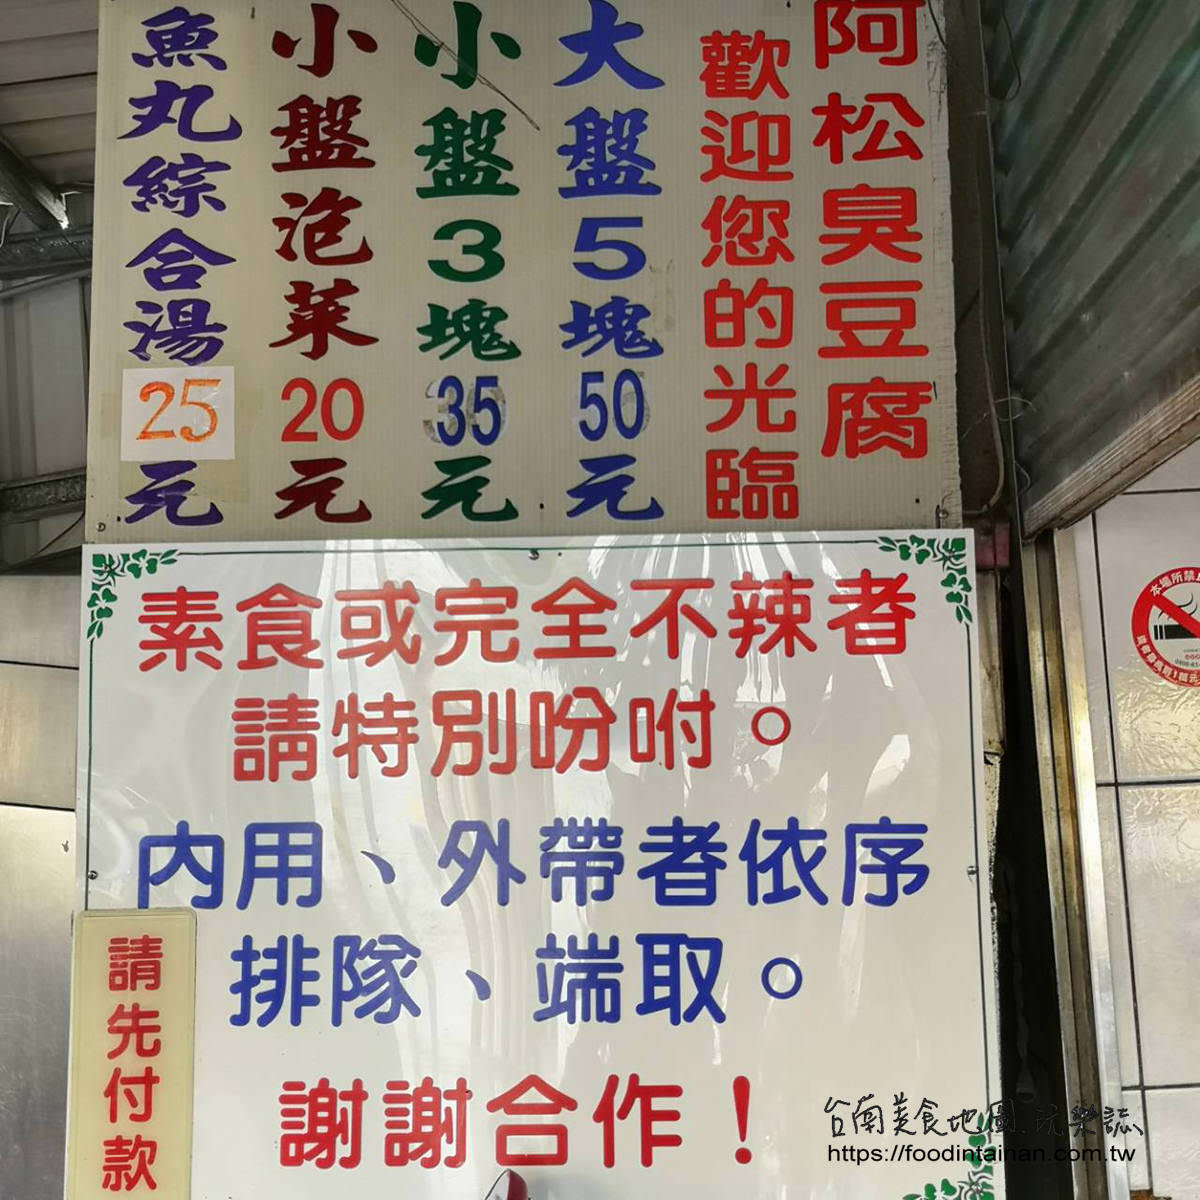 阿松臭豆腐
歡迎您的光臨
大盤5塊50元
小盤3塊35元
小盤泡菜20元
魚丸綜合湯25元
素食或完全不辣者
請特別吩咐。
內用、外帶者依序
排隊、端取。
謝謝合作!
請先付款
台南美食地圖.玩樂誌
https://foodintainan.com.tw